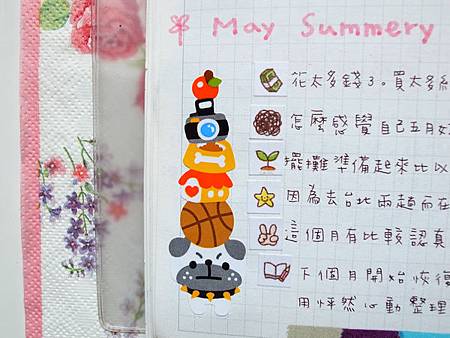 May Summery
花太多錢了。買太多
怎麼感覺自己五月好
擺攤準備起來比以
因為去台北兩趟而在
這個月有比較認真
下個月開始恢復
用怦然心動整理